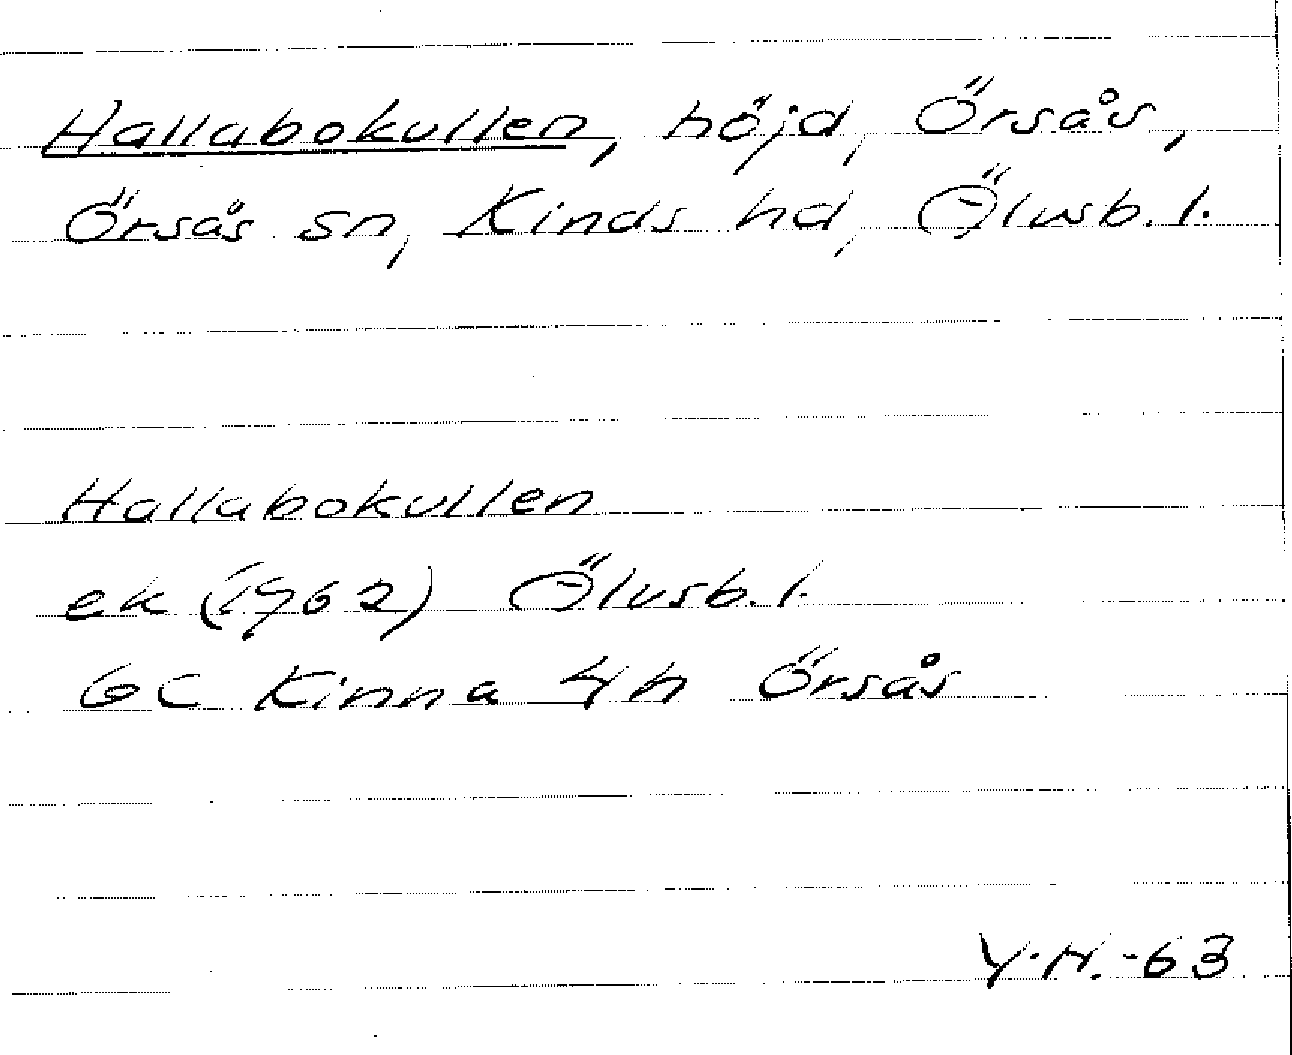 Hallabokullen, höjd, Örsås,
Örsås sn, Kinds hd, Älvsb. l.
Hallabokullen
ek (1962) Älvsb. l.
6C Kinna 4h Örsås
Y.H. -63